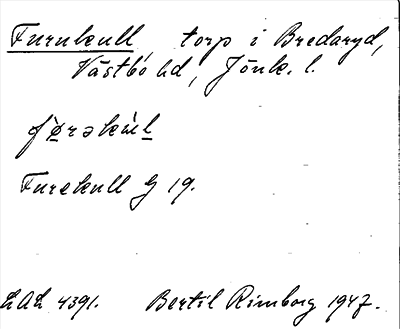 Furukull, torp i Bredaryd,
Västbo hd, Jönk. l.
fø̀rəkùl
Furekull G 19.
LAL 4391. Bertil Rimborg 1947.